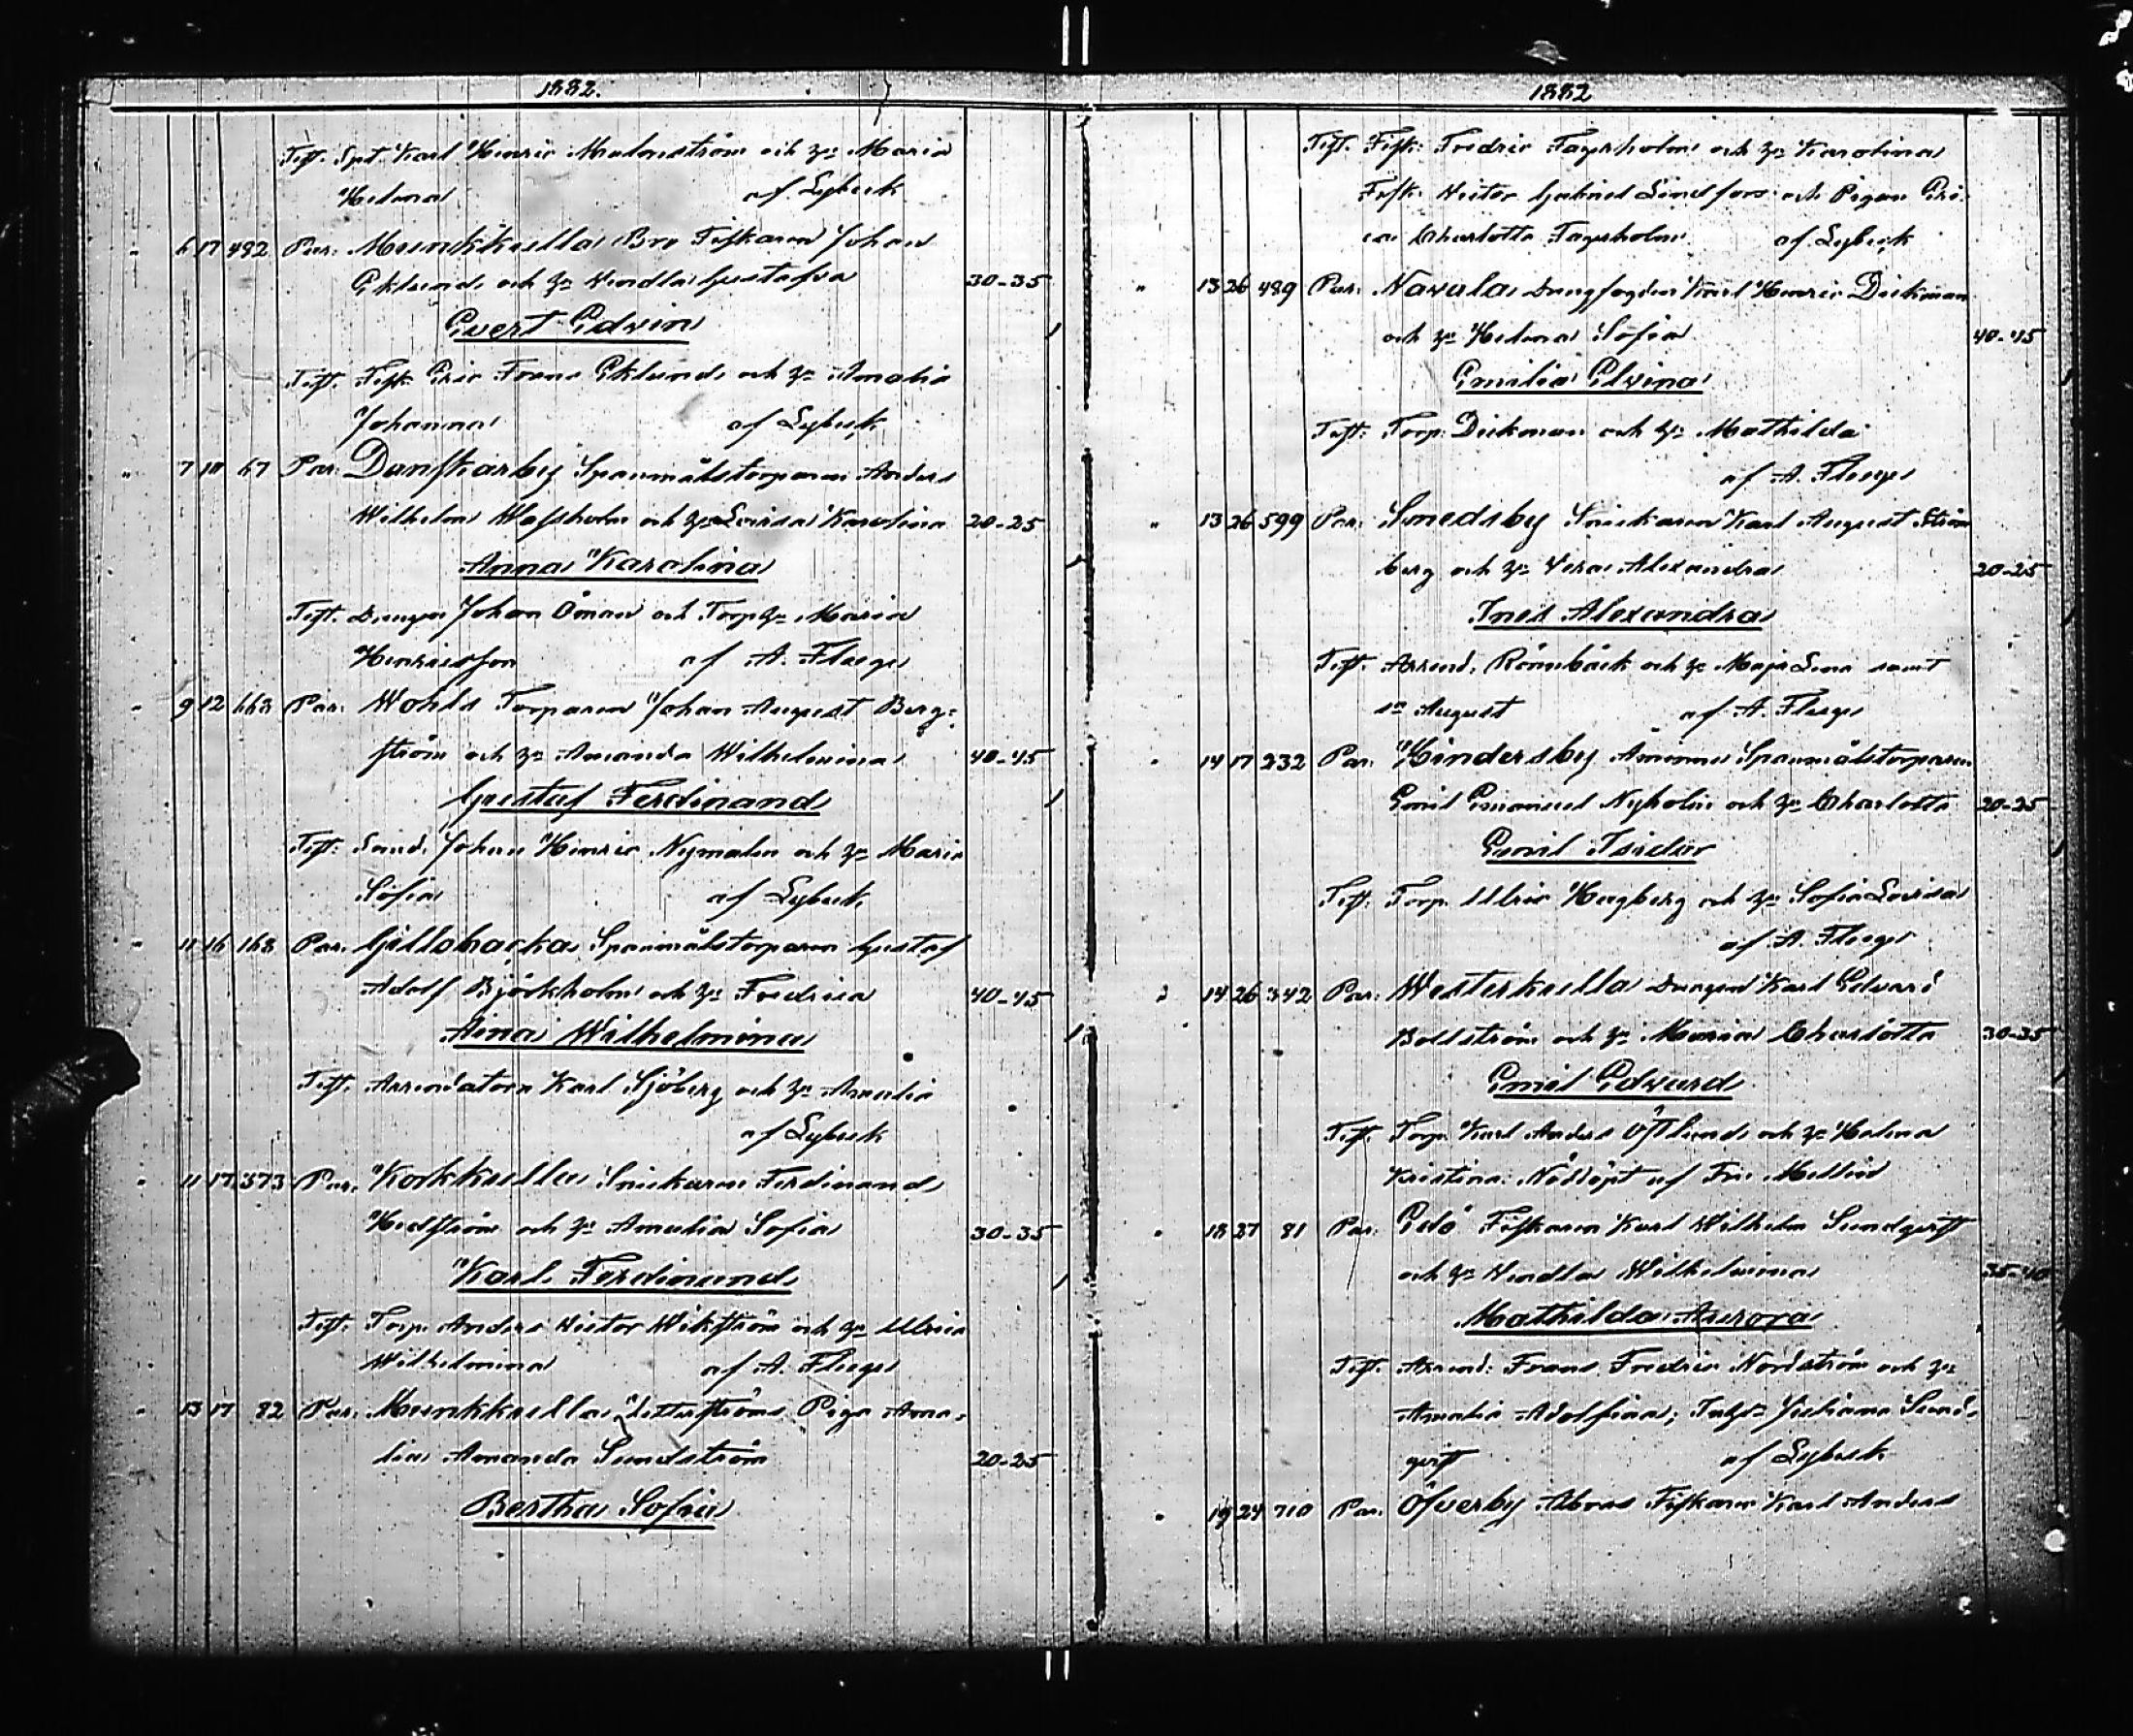 1882.
Test. Spt. Karl Henric Malmström och h:u Maria
Helena af Lybeck
" 6 17 482 Par. Munkkulla Bro Fiskaren Johan
Eklund och h:u Wendla Gustafva 30-35
Evert Edvin
Test. Fisk. Eric Frans Eklund och h:u Amalia
Johanna af Lybeck
" 7 10 67 Par: Danskarby Spanmålstorparen Anders
Wilhelm Wassholm och h:u Lovisa Karolina 20-25
Anna Karolina
Test. Drängen Johan Öman och Torp h:u Maria
Henricsson af A. Fleege
" 9 12 663 Par. Wohls Torparen Johan August Berg-
ström och h:u Amanda Wilhelmina 40-45
Gustaf Ferdinand
Test: Smed. Johan Henric Nymalm och h:u Maria
Sofia af Lybeck
" 11 16 168 Par. Gillobacka Spanmålstorparen Gustaf
Adolf Björkholm och h:u Fredrica 40-45
Aina Wilhelmina
Test. Arrendatorn Karl Sjöberg och h:u Amalia
af Lybeck
" 11 17 373 Par. Korkkulla Snickaren Ferdinand
Hedström och h:u Amalia Sofia 30-35
Karl Ferdinand
Test. Torp. Anders Victor Wikström och h:u Ulrica
Wilhelmina af A. Fleege
" 13 17 82 Par. Munkkulla Pigan Ama-
lia Amanda Sundström 20-25
Bertha Sofia
1882
Test. Fisk: Fredric Fagerholm och h:u Karolina
Fisk. Victor Gabriel Lindfors och Pigan Eri-
ca Charlotta Fagerholm af Lybeck
" 13 26 489 Par. Navala Drängfogden Karl Henric Dickman
och h:u Helena Sofia 40-45
Emilia Elvina
Test: Torp. Dickman och h:u Mathilda
af A. Fleege
" 13 26 599 Par. Smedsby Snickaren Karl August Ström
berg och h:u Vera Alexandra 20-25
Ines Alexandra
Test. Arrend. Rönnbäck och h:u Maja Lena samt
s:n August af A. Fleege
" 14 17 232 Par. Hindersby Spanmålstorparen
Emil Emanuel Nyholm och h:u Charlotta 20-25
Emil Isidor
Test: Torp. Ulric Hagberg och h:u Sofia Lovisa
af A. Fleege
" 14 26 342 Par: Westerkulla Drängen Karl Edvard
Bollström och h:u Maria Charlotta 30-35
Emil Edvard
Test. Torp. Karl Anders Östlund och h:u Helena
Kristina. Nöddöpt af Fru Mellin
" 18 27 81 Par: Edö Fiskaren Karl Wilhelm Sundqvist
och h:u Wendla Wilhelmina 35-40
Mathilda Aurora
Test. Arrend: Frans Fredric Nordström och h:u
Amalia Adolfina; Juliana Sund-
qvist af Lybeck
" 19 24 710 Par. Öfverby Abras Fiskaren Karl Anders